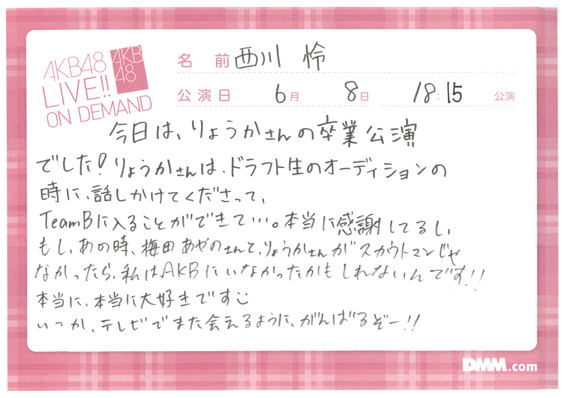 AKB48
LIVE!!
ON DEMAND
AKB
48
名 前 西川 怜
公演日 6月 8日 18:15 公演
今日は、りょうかさんの卒業公演
でした!りょうかさんは、ドラフト生のオーディションの
時に、話しかけてくださって、
TeamBに入ることができて…。本当に感謝してるし、
もし、あの時、梅田あやのさんと、りょうかさんがスカウトマンじゃ
なかったら、私はAKBにいなかったかもしれないんです!!
本当に、本当に大好きです
いつか、テレビでまた会えるように、がんばるぞー!!
DMM.com